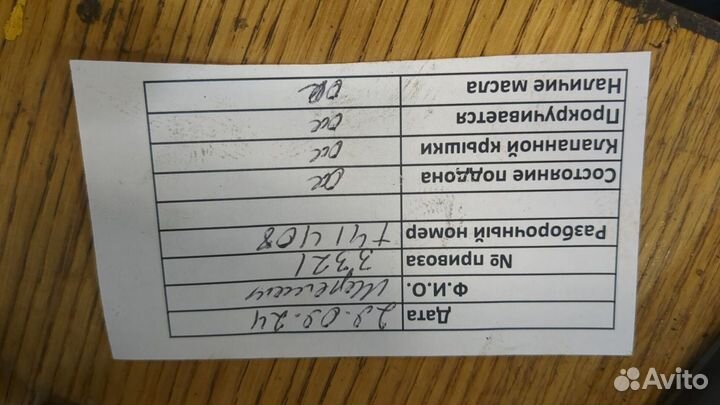 Дата 29.09.24
Ф.И.О.
№ привоза 3321
Разборочный номер т41408
Состояние поддона ок
Клапанной крышки ок
Прокручивается ок
Наличие масла ок
Avito